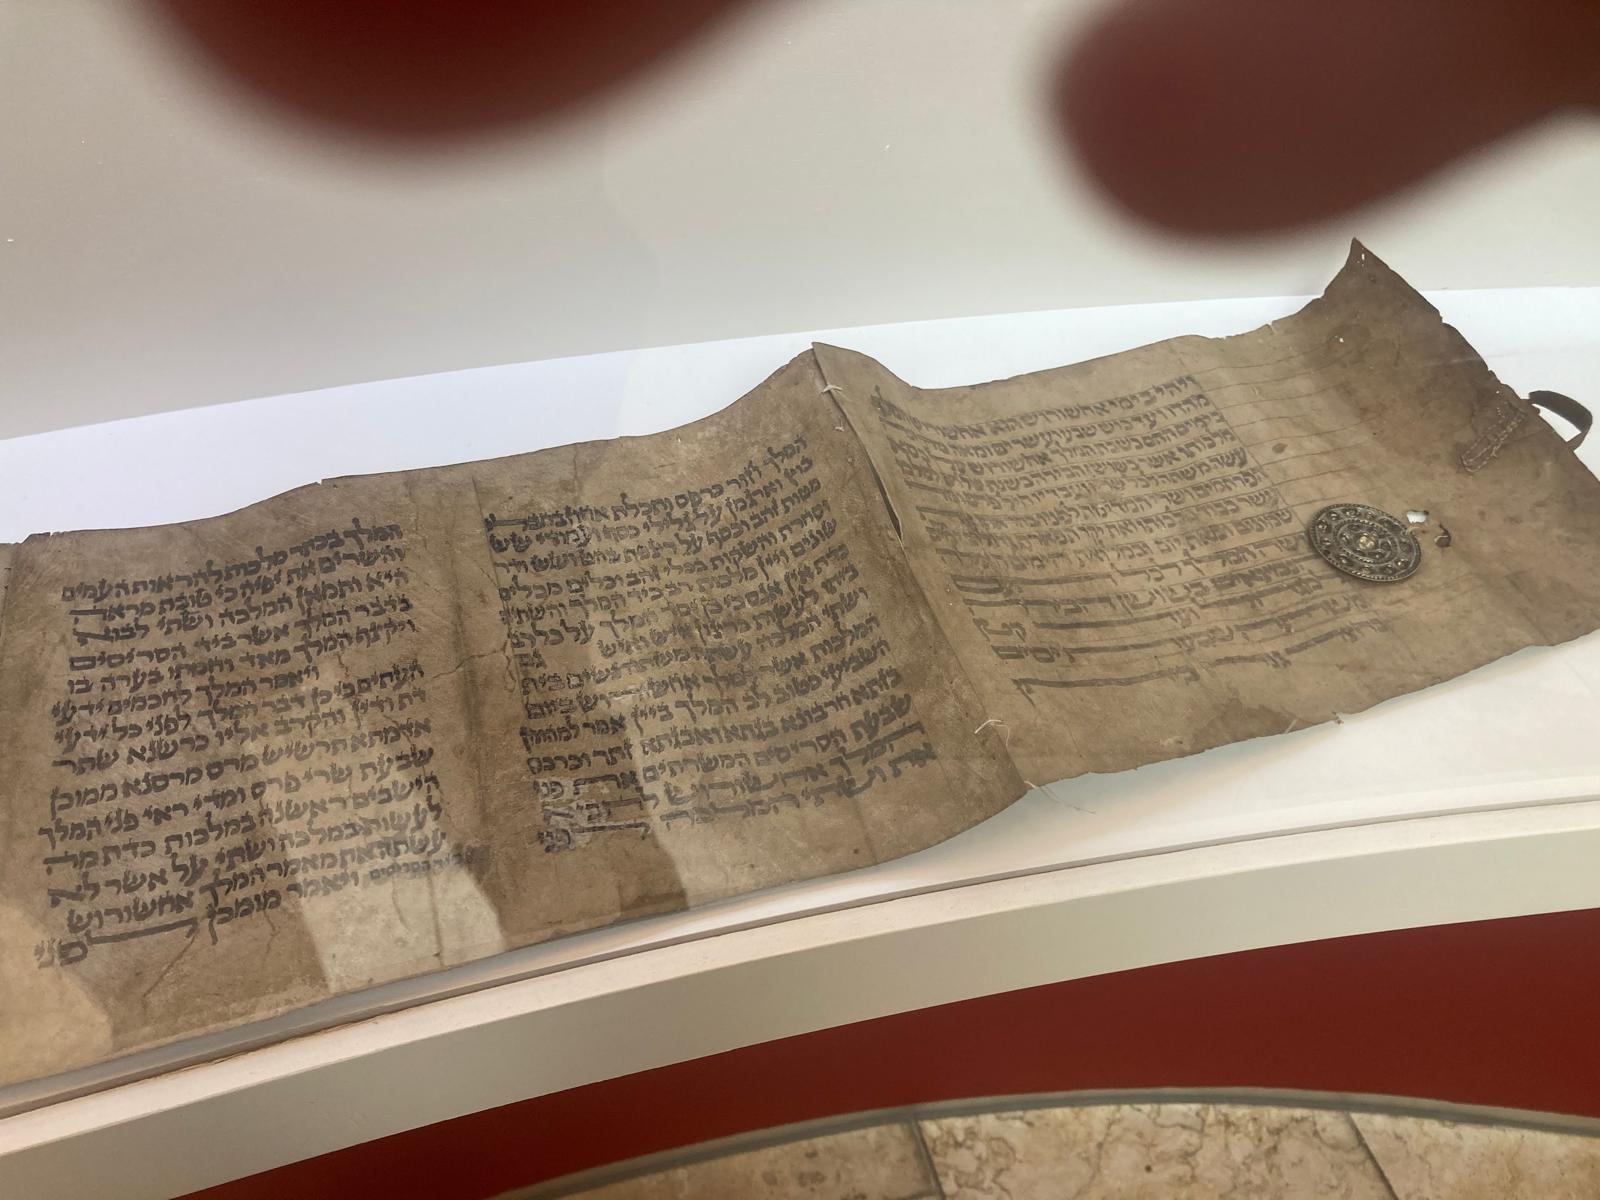 ויהי בימי אחשורוש הוא אחשורוש
מהדו ועד כוש שבע ועשרים ומאה
בימים ההם כשבת המלך אחשורוש על כסא
מלכותו אשר בשושן הבירה בשנת שלוש
עשה משתה לכל שריו ועבדיו חיל פרס
הפרתמים ושרי המדינות לפניו
עשר כבוד מלכותו ואת יקר תפארת
שמונים ומאת יום ובמלואת הימים האלה
עשה המלך לכל
הנמצאים בשושן הבירה
המלך חור כרפס ותכלת אחוז בחבלי
בוץ וארגמן על גלילי כסף ועמודי שש
מטות זהב וכסף על רצפת בהט ושש ודר
וסחרת והשקות בכלי זהב וכלים מכלים
שונים ויין מלכות רב כיד המלך והשתיה
כדת אין אנס כי כן יסד המלך על כל רב
ביתו לעשות כרצון איש ואיש גם
ושתי המלכה עשתה משתה נשים בית
המלכות אשר למלך אחשורוש ביום
השביעי כטוב לב המלך ביין אמר למהומן
בזתא חרבונא בגתא ואבגתא זתר וכרכס
שבעת הסריסים המשרתים את פני
המלך אחשורוש להביא
את ושתי המלכה לפני
המלך בכתר מלכות להראות העמים
והשרים את יפיה כי טובת מראה
היא ותמאן המלכה ושתי לבוא
בדבר המלך אשר ביד הסריסים
ויקצף המלך מאד וחמתו בערה בו
ויאמר המלך לחכמים ידעי
העתים כי כן דבר המלך לפני כל ידעי
דת ודין והקרב אליו כרשנא שתר
אדמתא תרשיש מרס מרסנא ממוכן
שבעת שרי פרס ומדי ראי פני המלך
הישבים ראשנה במלכות כדת מה
לעשות במלכה ושתי על אשר לא
עשתה את מאמר המלך אחשורוש
ביד הסריסים ויאמר מומכן לפני